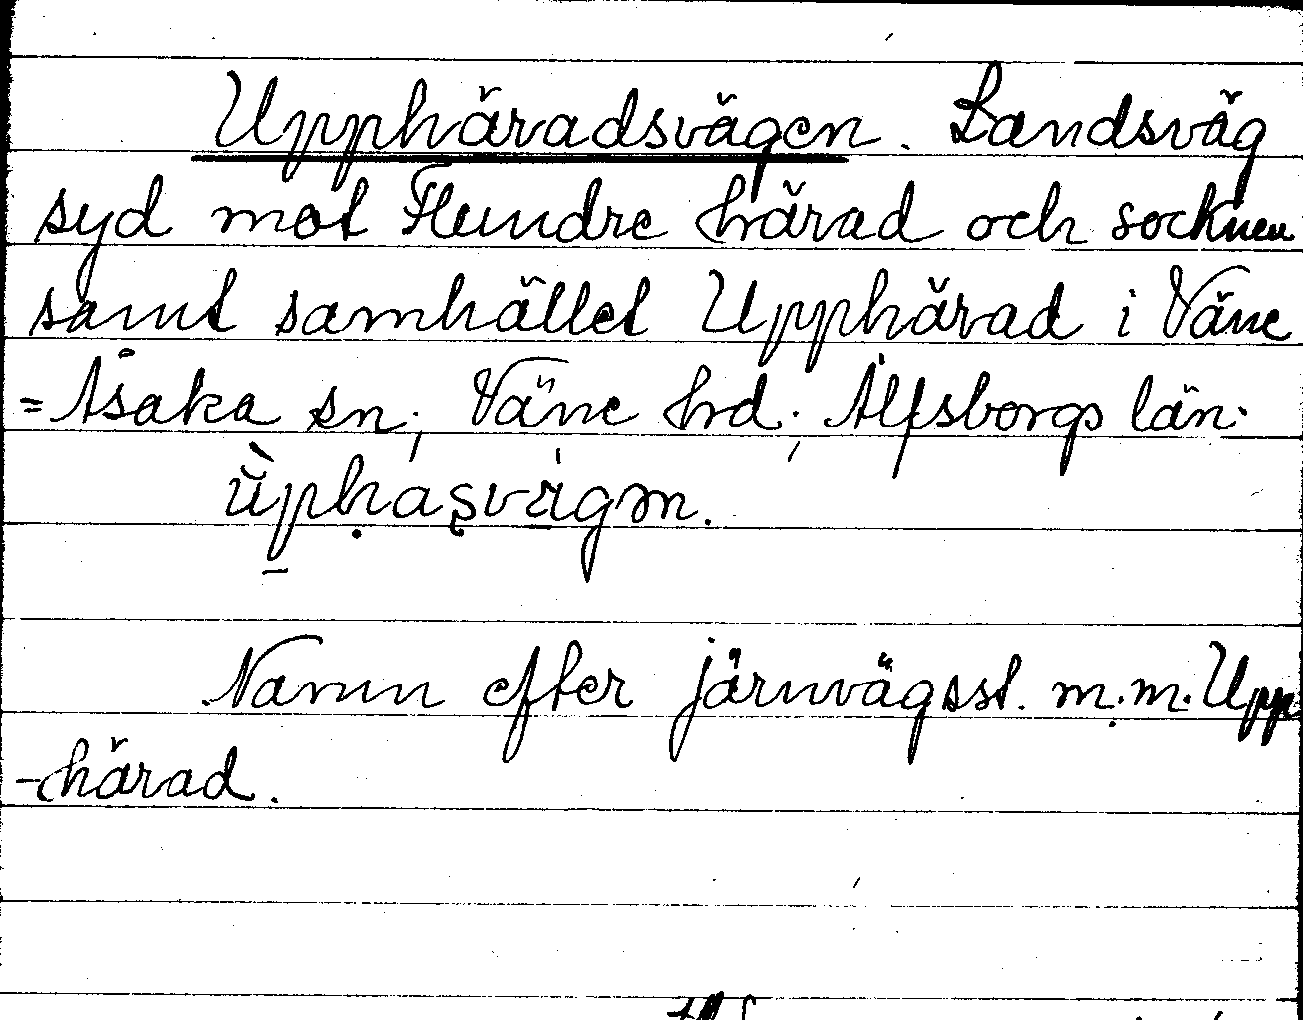 Upphäradsvägen. Landsväg
syd mot Flundre härad och socknen
samt samhället Upphärad i Väne
=Åsaka sn, Väne hrd, Älfsborgs län.
Namn efter järnvägsst. m.m. Upp
-härad.